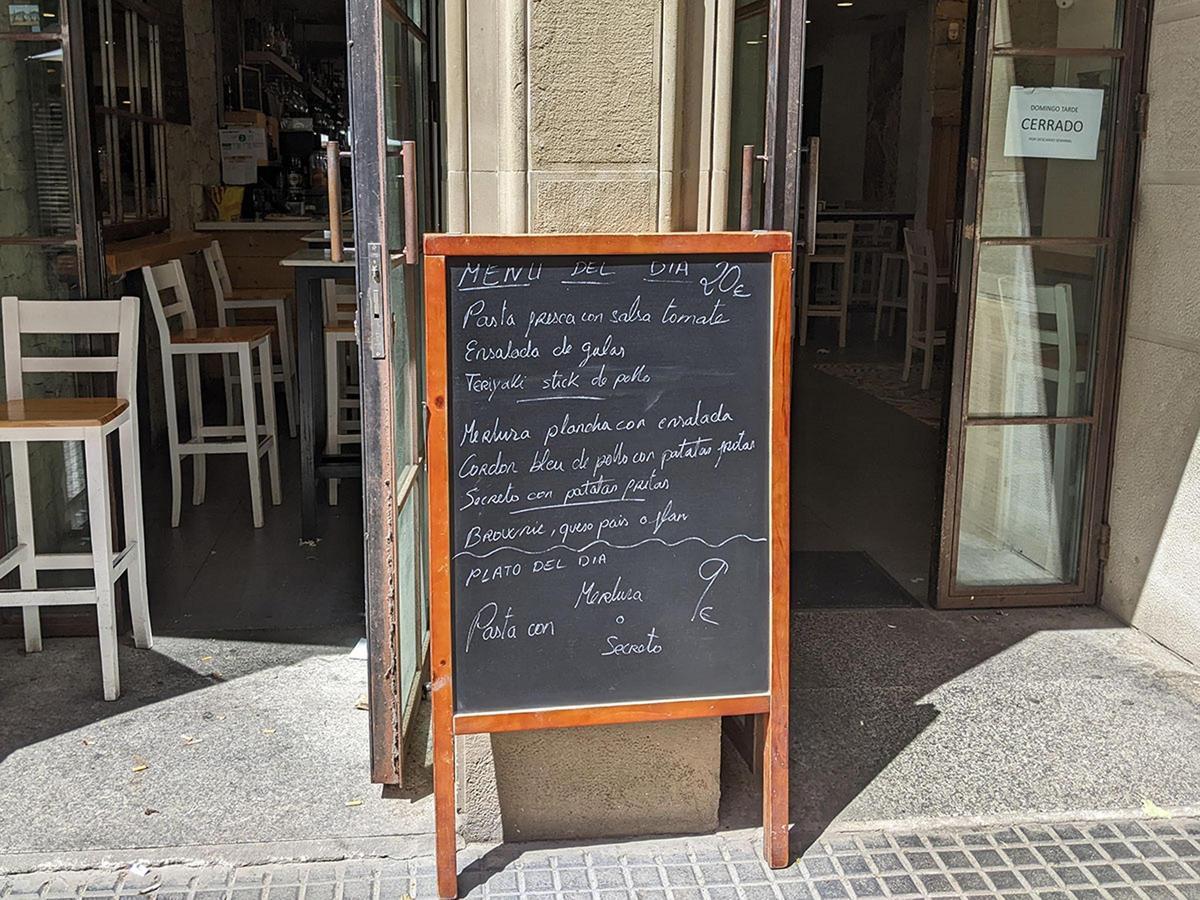 MENU DEL DIA 20€
Pasta fresca con salsa tomate
Ensalada de gulas
Teriyaki stick de pollo
Merluza plancha con ensalada
Cordon bleu de pollo con patatas fritas
Secreto con patatas fritas
Brownie, queso pais o flan
PLATO DEL DIA
9€
Pasta con
Merluza
o
Secreto
DOMINGO TARDE
CERRADO
POR DESCANSO SEMANAL